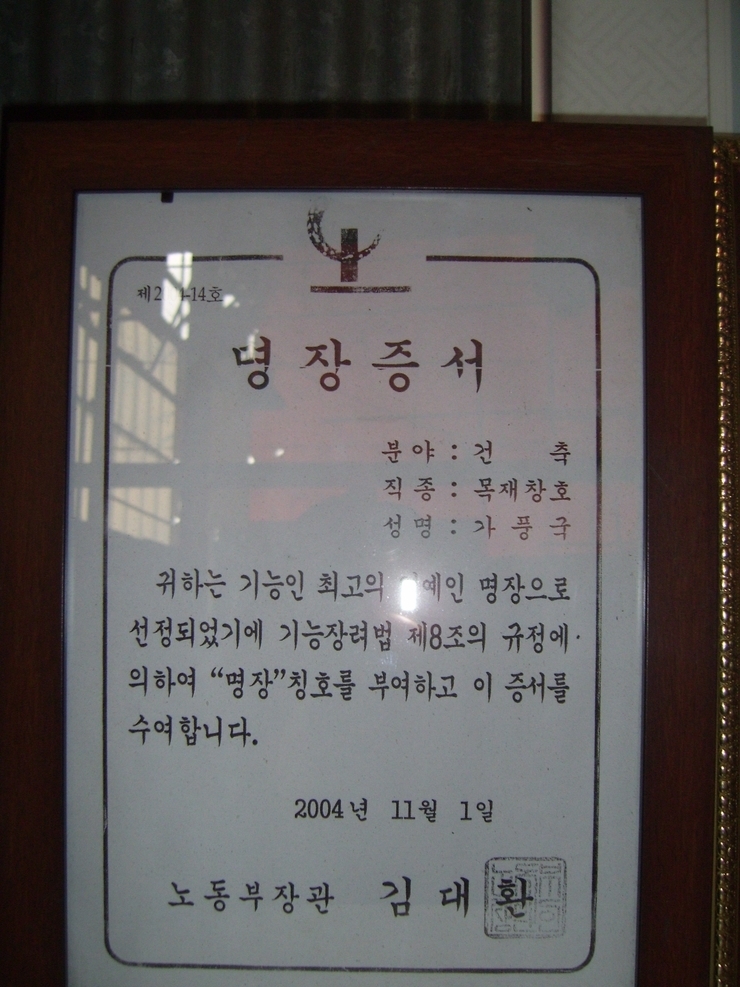 제2 -14호
명장증서
분야 : 건 축
직종 : 목재창호
성명 : 가풍국
귀하는 기능인 최고의 인 명장으로
선정되었기에 기능장려법 제8조의 규정에
의하여 “명장”칭호를 부여하고 이 증서를
수여합니다.
2004년 11월 1일
노동부장관 김대환